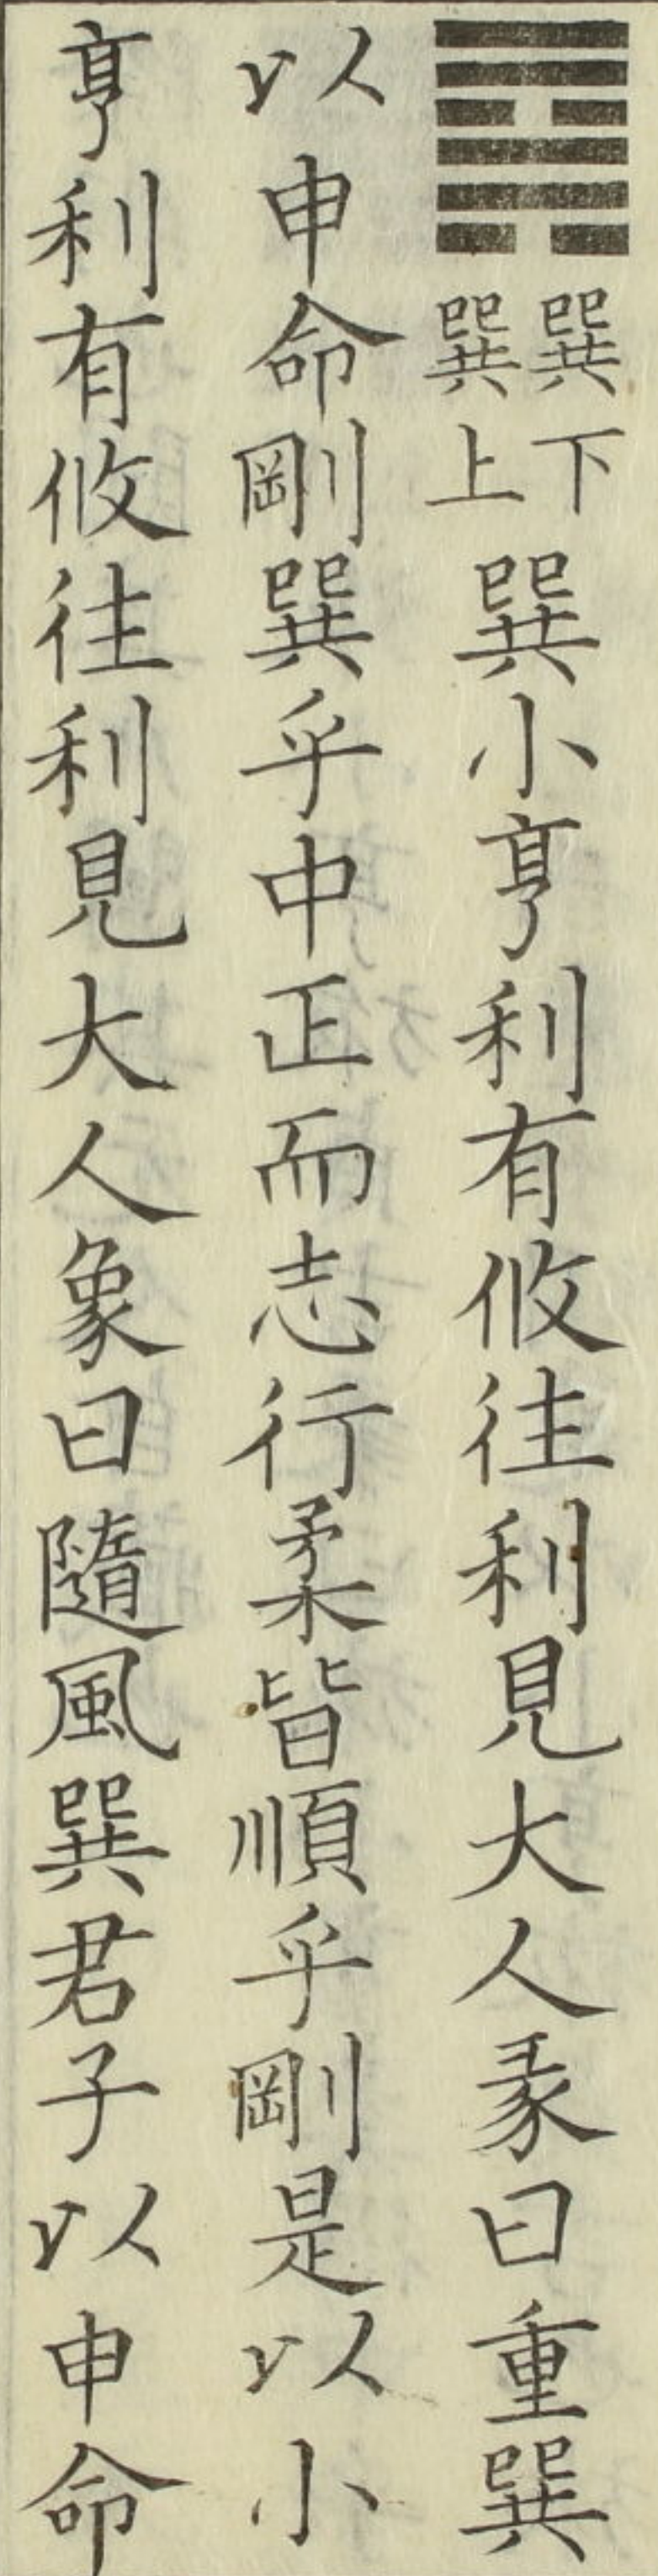 巽下
巽上
巽小亨利有攸往利見大人彖曰重巽
以申命剛巽乎中正而志行柔皆順乎剛是以小
亨利有攸往利見大人象曰隨風巽君子以申命